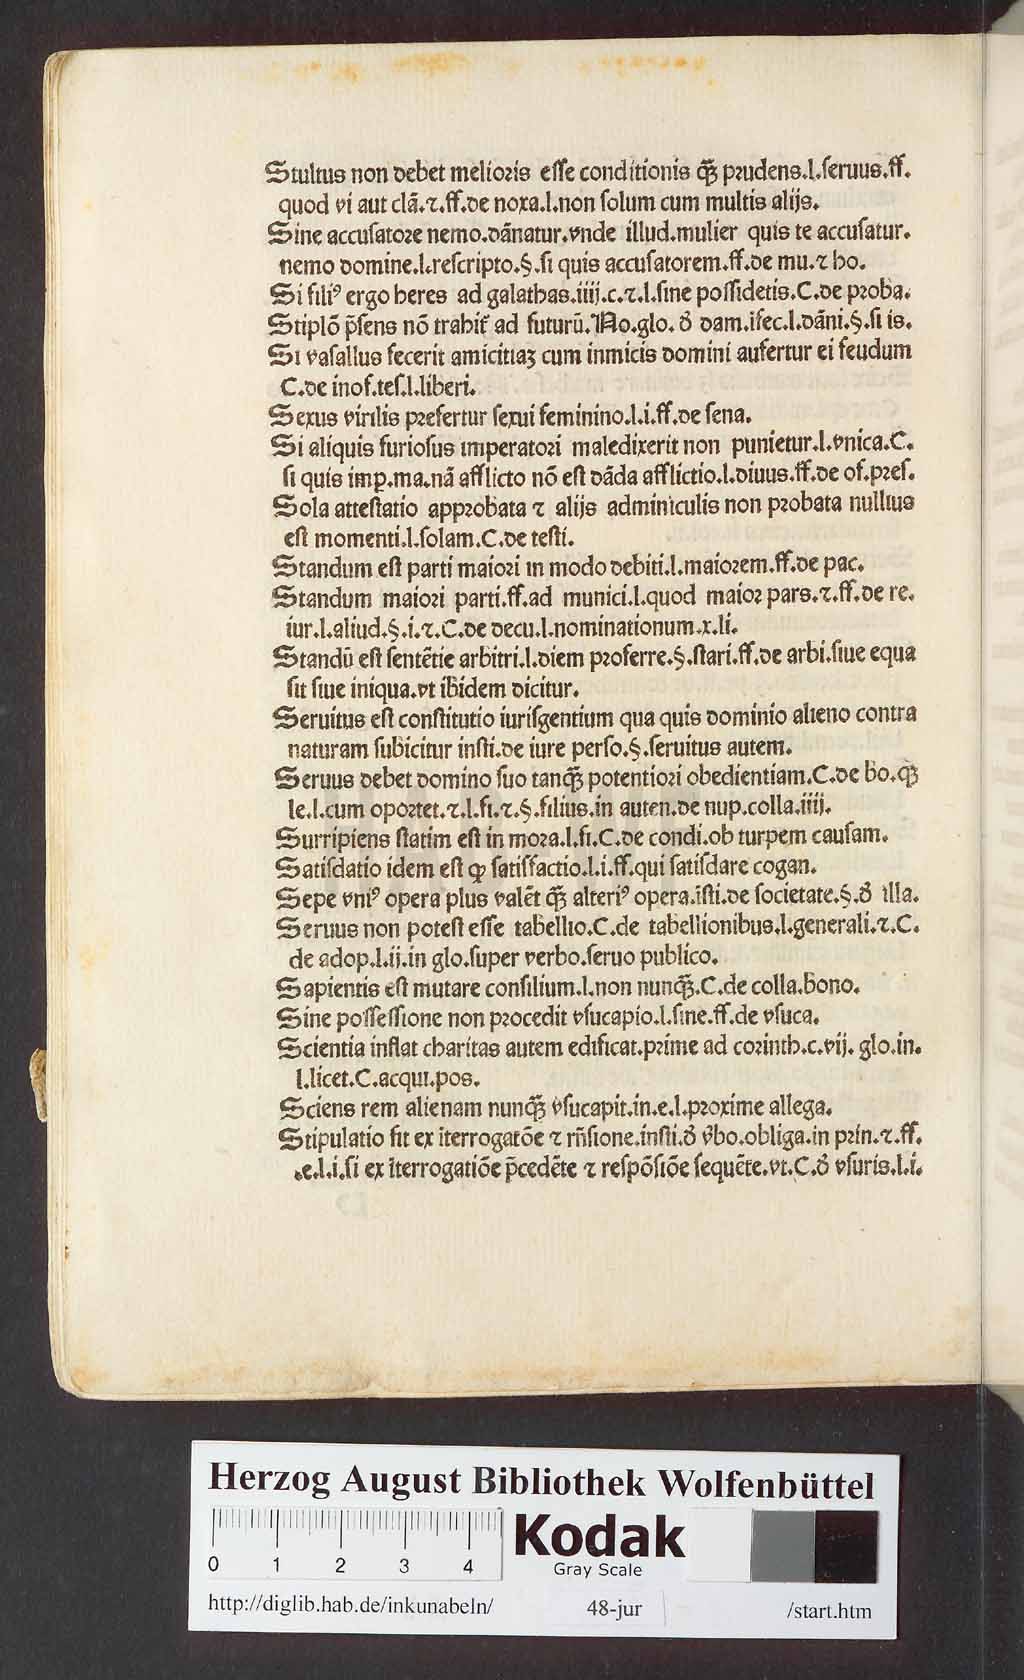 Stultus non debet melioris esse conditionis q̄ꝫ prudens.l.seruus.ff.
quod vi aut clā.⁊.ff.de noxa.l.non solum cum multis alijs.
Sine accusatore nemo.dānatur.vnde illud.mulier quis te accusatur.
nemo domine.l.rescripto.§.si quis accusatorem.ff.de mu.⁊ ho.
Si filiꝰ ergo heres ad galathas.iiij.c.⁊.l.sine possidetis.C.de proba.
Stiplō p̄sens nō trahit̄ ad futurū.No.glo.ð dam.ifec.l.dāni.§.si is.
Si vasallus fecerit amicitiaꝫ cum inmicis domini aufertur ei feudum
C.de inof.tes.l.liberi.
Sexus virilis prefertur sexui feminino.l.i.ff.de sena.
Si aliquis furiosus imperatori maledixerit non punietur.l.vnica.C.
si quis imp.ma.nā afflicto nō est dāda afflictio.l.diuus.ff.de of.pres.
Sola attestatio approbata ⁊ alijs adminiculis non probata nullius
est momenti.l.solam.C.de testi.
Standum est parti maiori in modo debiti.l.maiorem.ff.de pac.
Standum maiori parti.ff.ad munici.l.quod maior pars.⁊.ff.de re.
iur.l.aliud.§.i.⁊.C.de decu.l.nominationum.x.li.
Standū est sentētie arbitri.l.diem proferre.§.stari.ff.de arbi.siue equa
sit siue iniqua.vt ibidem dicitur.
Seruitus est constitutio iurisgentium qua quis dominio alieno contra
naturam subicitur insti.de iure perso.§.seruitus autem.
Seruus debet domino suo tanq̄ꝫ potentiori obedientiam.C.de bo.q̄ꝫ
le.l.cum oportet.⁊.l.fi.⁊.§.filius.in auten.de nup.colla.iiij.
Surripiens statim est in mora.l.fi.C.de condi.ob turpem causam.
Satisdatio idem est ꝙ satisfactio.l.i.ff.qui satisdare cogan.
Sepe vniꝰ opera plus valēt q̄ꝫ alteriꝰ opera.īsti.de societate.§.ð illa.
Seruus non potest esse tabellio.C.de tabellionibus.l.generali.⁊.C.
de adop.l.ij.in glo.super verbo.seruo publico.
Sapientis est mutare consilium.l.non nunq̄ꝫ.C.de colla.bono.
Sine possessione non procedit vsucapio.l.sine.ff.de vsuca.
Scientia inflat charitas autem edificat.prime ad corinth.c.vij. glo.in.
l.licet.C.acqui.pos.
Sciens rem alienam nunq̄ꝫ vsucapit.in.e.l.proxime allega.
Stipulatio fit ex iterrogatōe ⁊ rn̄sione.insti.ð v̄bo.obliga.in prin.⁊.ff.
.e.l.i.si ex īterrogatiōe p̄cedēte ⁊ respōsiōe sequēte.vt.C.ð vsuris.l.i.
Herzog August Bibliothek Wolfenbüttel
0 1 2 3 4
Kodak
Gray Scale
http://diglib.hab.de/inkunabeln/ 48-jur /start.htm